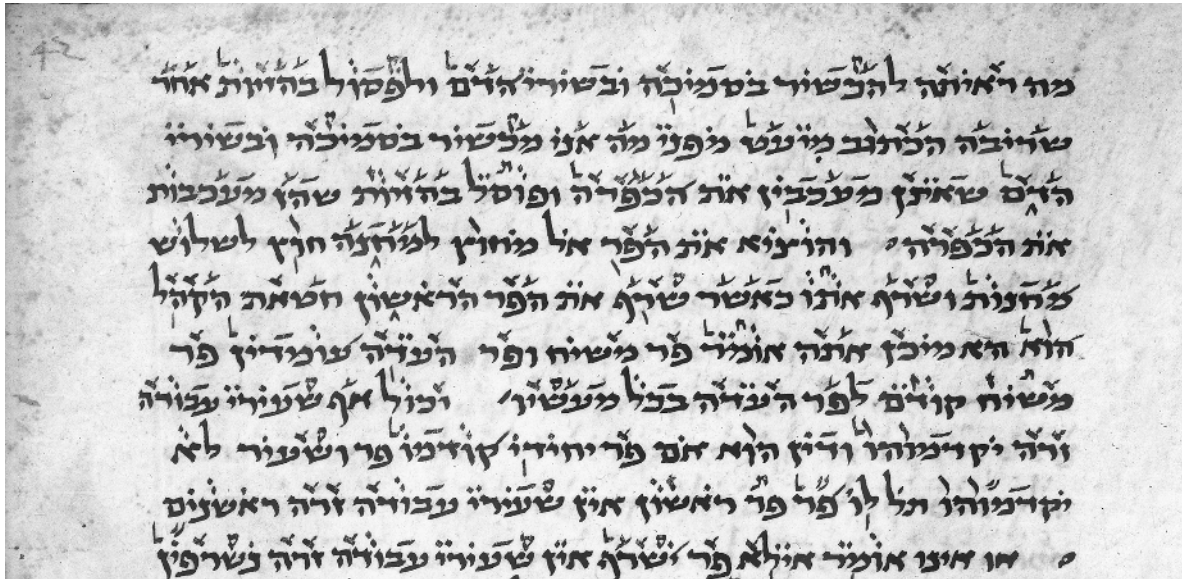 מה ראיתה להכשיר בסמיכה ובשורי הדם ולפסול בהזיות אחר
שריבה הכתוב מיעט מפני מה אני מכשיר בסמיכה ובשורי
הדם שאינן מעכבין את הכפרה ופוסל בהזיות שהן מעכבות
את הכפרה והוציא את הפר אל מחוץ למחנה חוץ לשלוש
מחנות ושרף אותו כאשר שרף את הפר הראשון חטאת הקהל
הוא הא מיכן אתה אומר פר משיח ופר העדה עומדין פר
משיח קודם לפר העדה בכל מעשיו יכול אף שעירי עבודה
זרה יקדמוהו ודין הוא אם פר יחידי קודמו פר ושעיר לא
יקדמוהו תל לו פר פר ראשון אין שעירי עבודה זרה ראשנים
או אינו אומר אילא פר ישרף אין שעירי עבודה זרה נשרפין